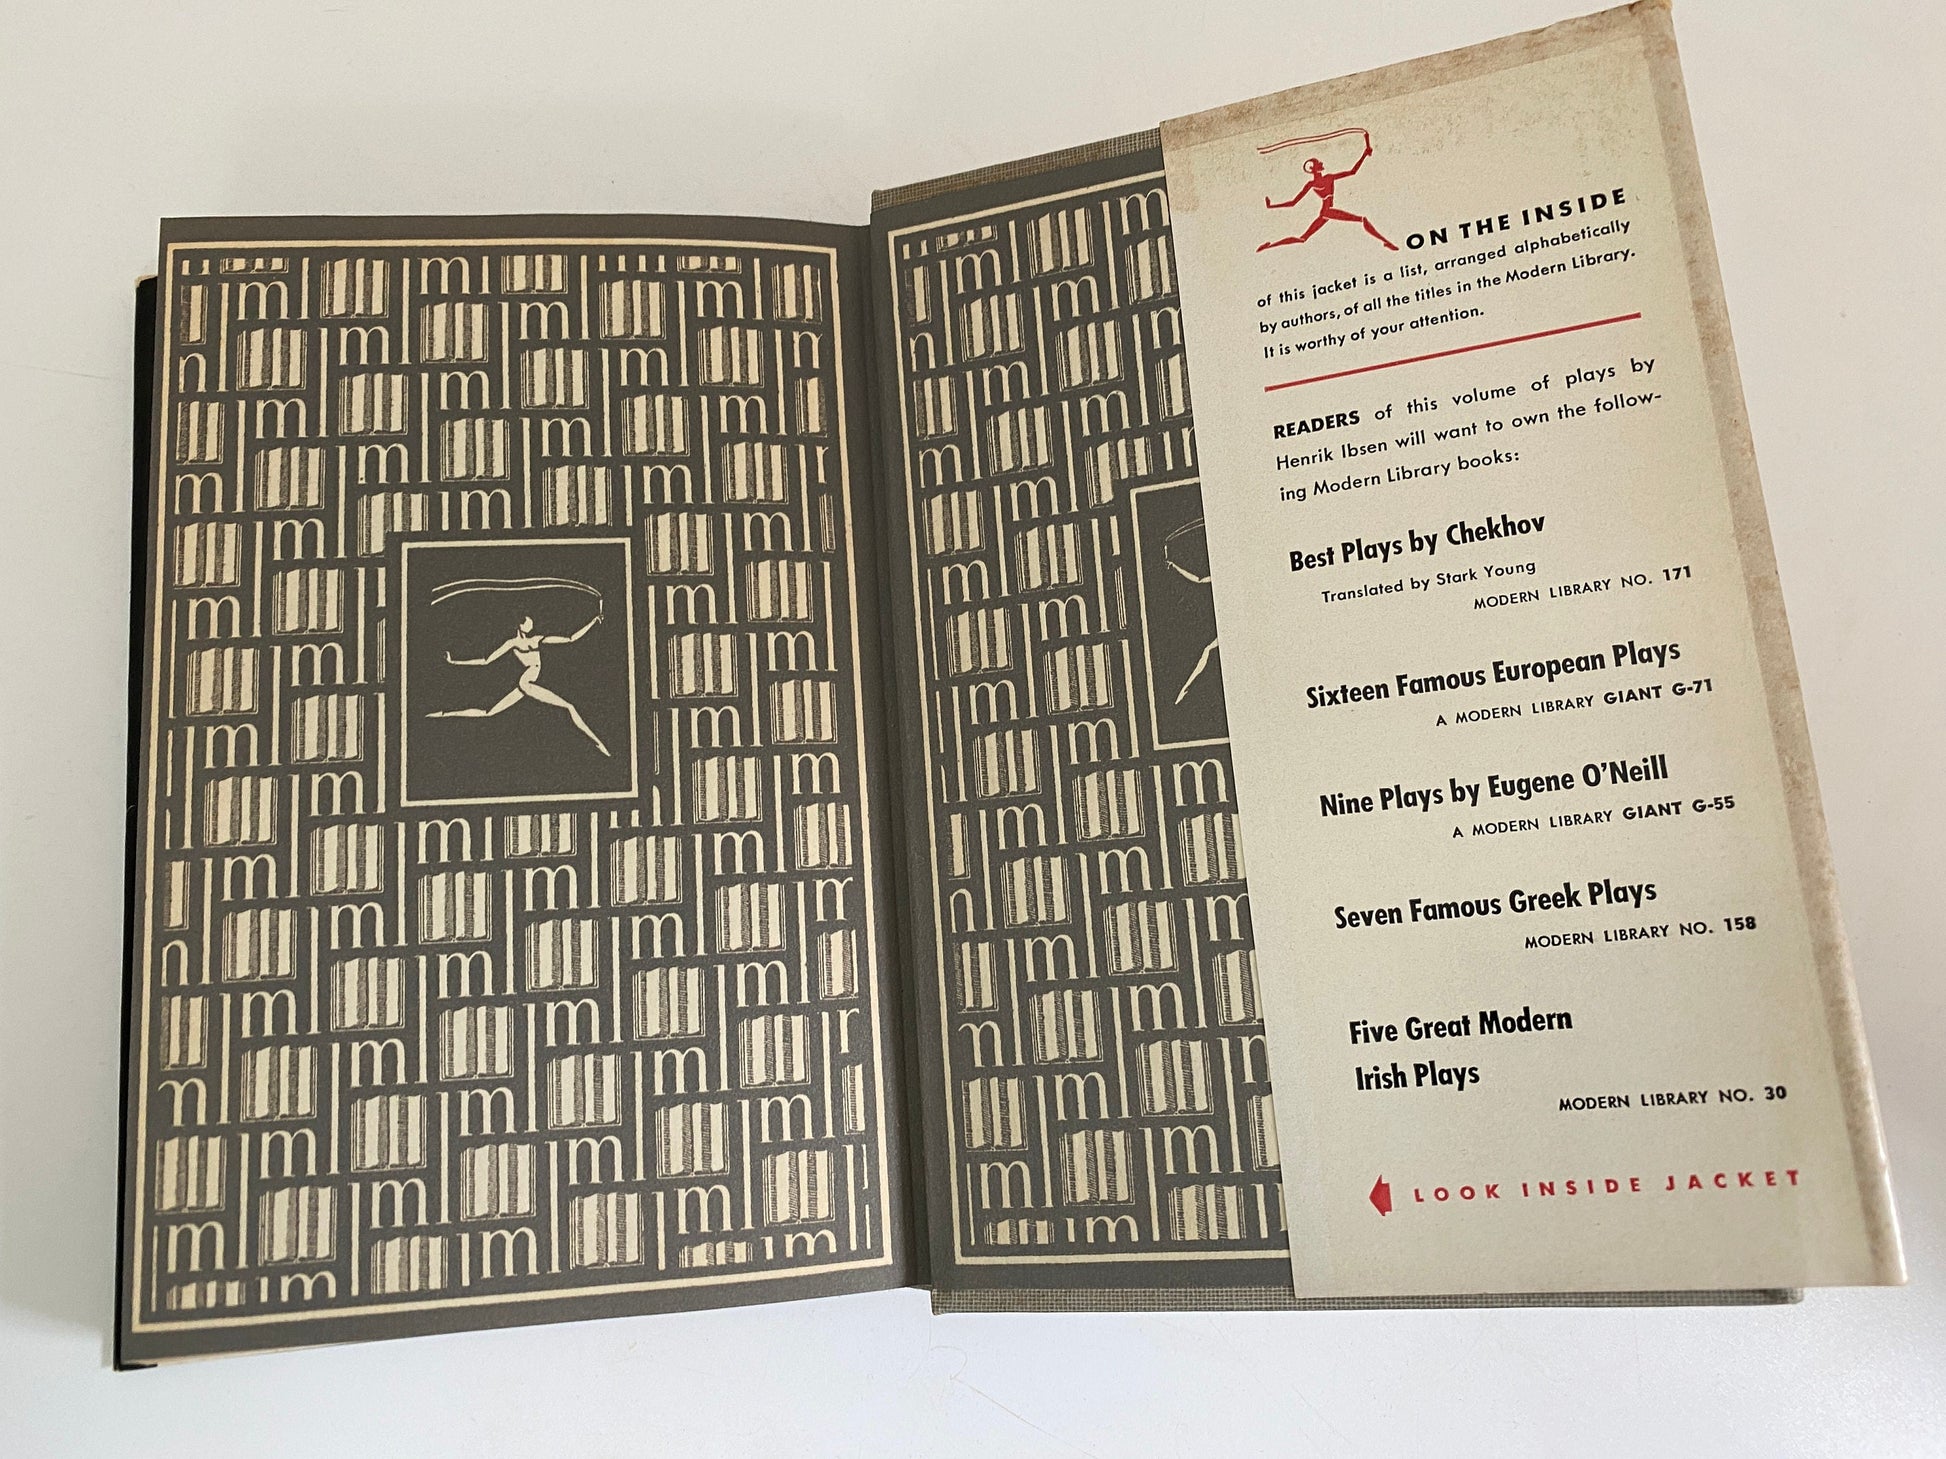 ON THE INSIDE
of this jacket is a list, arranged alphabetically
by authors, of all the titles in the Modern Library.
It is worthy of your attention.
READERS of this volume of plays by
Henrik Ibsen will want to own the follow-
ing Modern Library books:
Best Plays by Chekhov
Translated by Stark Young
MODERN LIBRARY NO. 171
Sixteen Famous European Plays
A MODERN LIBRARY GIANT G-71
Nine Plays by Eugene O'Neill
A MODERN LIBRARY GIANT G-55
Seven Famous Greek Plays
MODERN LIBRARY NO. 158
Five Great Modern
Irish Plays
MODERN LIBRARY NO. 30
LOOK INSIDE JACKET